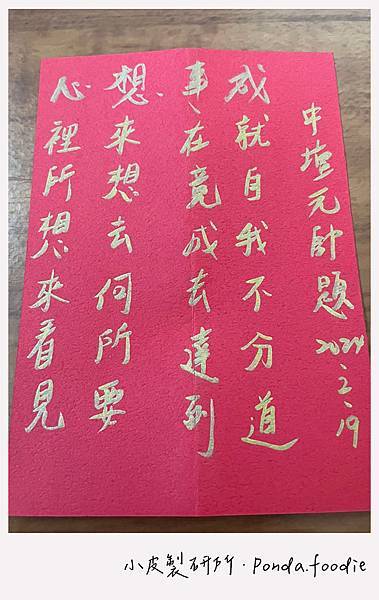 中壇元帥題 2024、2、19
成就自我不分道
事、在竟成去達到
想來想去何所要
心裡所想來看見
小皮製研所·Ponda.foodie